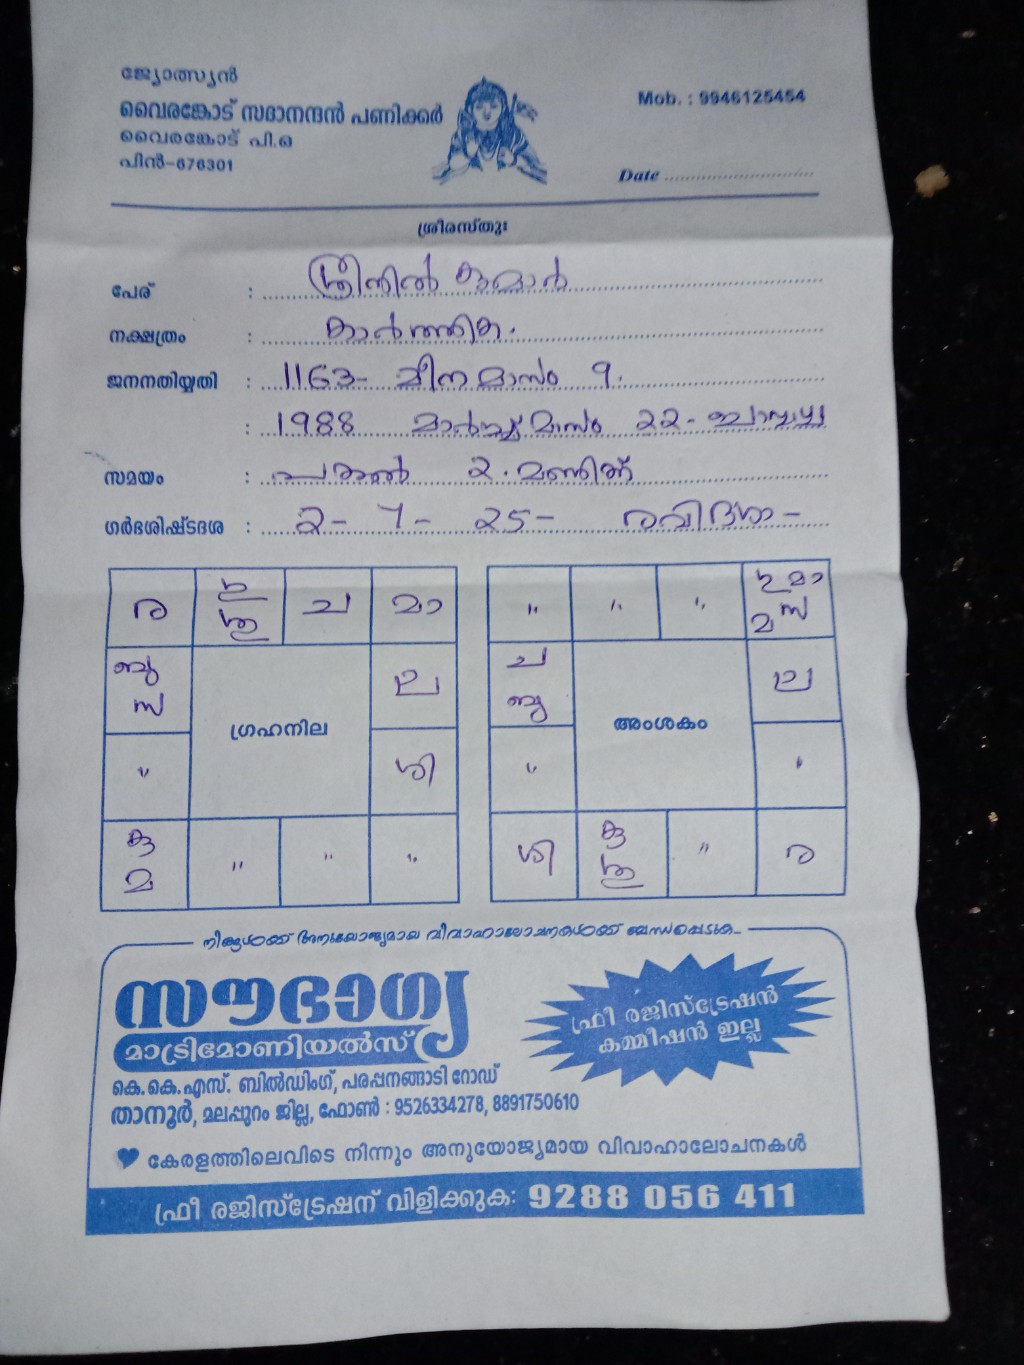 ജ്യോത്സ്യൻ
വൈരങ്കോട് സദാനന്ദൻ പണിക്കർ
വൈരങ്കോട് പി.ഒ
പിൻ-676301
Mob. : 9946125454
Date
ശ്രീരസ്തുഃ
പേര് : ശ്രീനിൽ കുമാർ
നക്ഷത്രം : കാർത്തിക.
ജനനതിയ്യതി : 1163- മീനമാസം 9.
: 1988 മാർച്ച് മാസം 22-
സമയം : പകൽ 2. മണിക്ക്
ഗർഭശിഷ്ടദശ : 2- 7- 25- രവിദശാ-
ര ഗു ശു ച മാ
ബു സ ല
ഗ്രഹനില
" ശി
കു മ " " "
" " " ഗു മാ മ സ
ച ബു ല
അംശകം
" "
ശി കു ശു " ര
നിങ്ങൾക്ക് അനുയോജ്യമായ വിവാഹാലോചനകൾക്ക് ബന്ധപ്പെടുക...
സൗഭാഗ്യ
മാട്രിമോണിയൽസ്
ഫ്രീ രജിസ്ട്രേഷൻ
കമ്മീഷൻ ഇല്ല
കെ.കെ.എസ്. ബിൽഡിംഗ്, പരപ്പനങ്ങാടി റോഡ്
താനൂർ, മലപ്പുറം ജില്ല, ഫോൺ : 9526334278, 8891750610
കേരളത്തിലെവിടെ നിന്നും അനുയോജ്യമായ വിവാഹാലോചനകൾ
ഫ്രീ രജിസ്ട്രേഷന് വിളിക്കുക: 9288 056 411